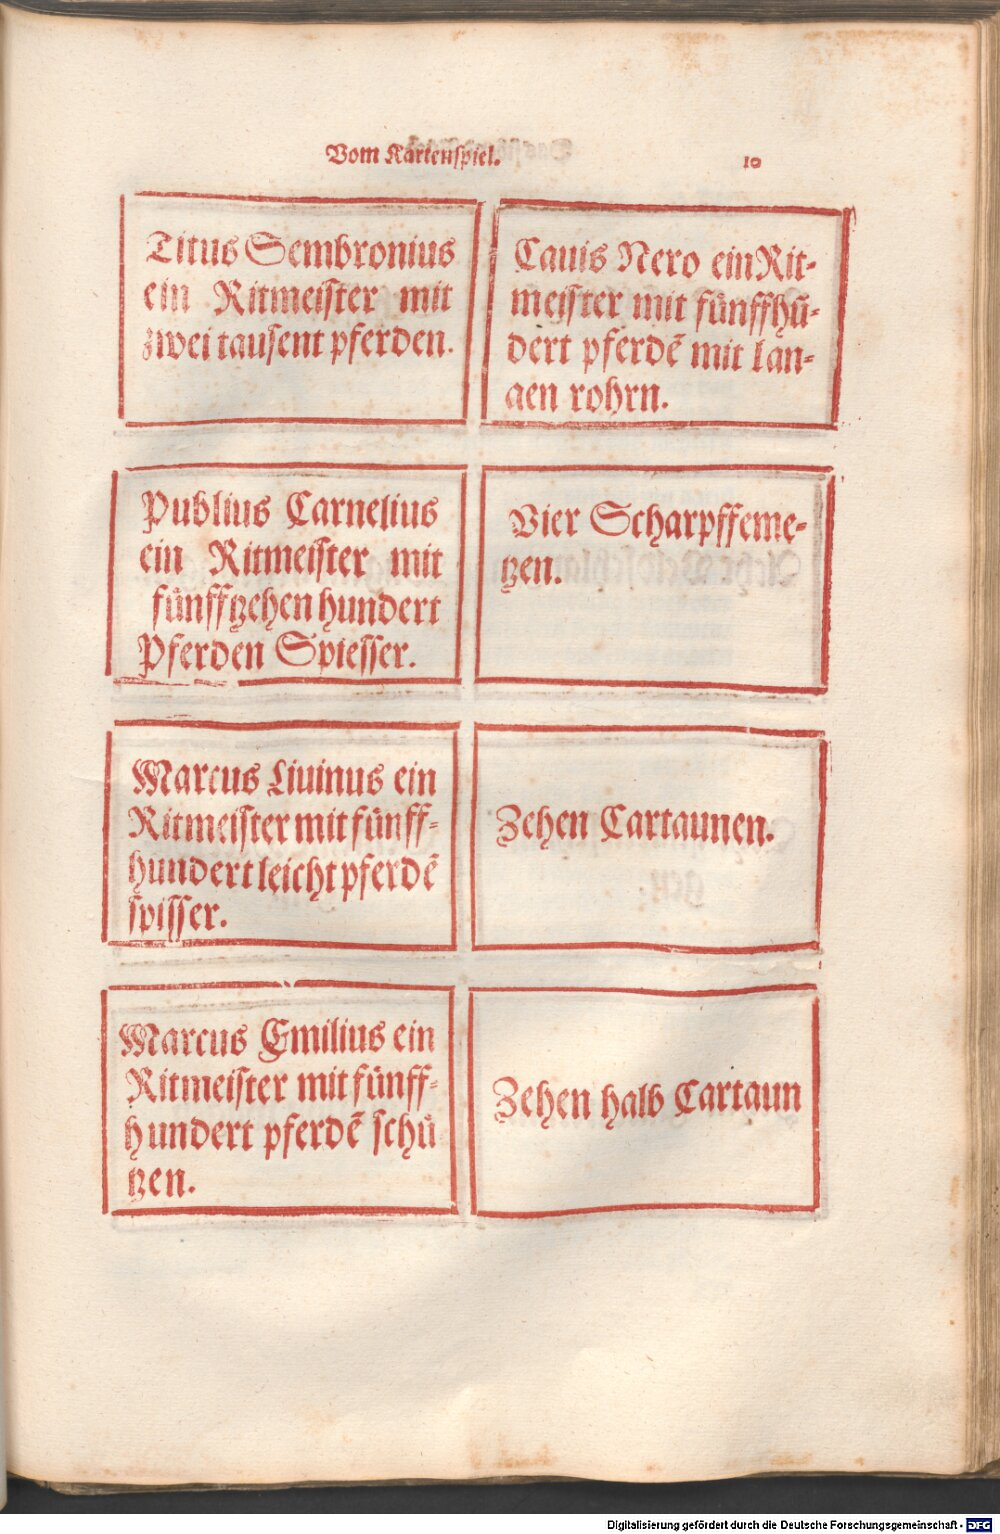 Vom Kartenspiel.
10
Titus Sembronius
ein Ritmeister mit
zwei tausent pferden.
Cauis Nero ein Rit-
meister mit fünffhū-
dert pferdē mit lan-
gen rohrn.
Publius Carnelius
ein Ritmeister mit
fünfftzehen hundert
Pferden Spiesser.
Vier Scharpffeme-
tzen.
Marcus Liuinus ein
Ritmeister mit fünff-
hundert leicht pferdē
spisser.
Zehen Cartaunen.
Marcus Emilius ein
Ritmeister mit fünff-
hundert pferdē schü
tzen.
Zehen halb Cartaun
Digitalisierung gefördert durch die Deutsche Forschungsgemeinschaft - DFG